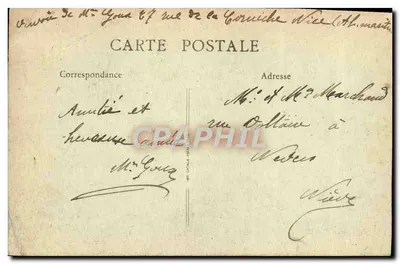 envoi de Mr Goux 27 rue de la Corniche Nice (Al. marit
CARTE POSTALE
Correspondance
Adresse
Amitié et
heureuse
Mr Goux
Mr et Mme Marchand
rue Voltaire à
Nevers
Nièvre
CPAPHIL